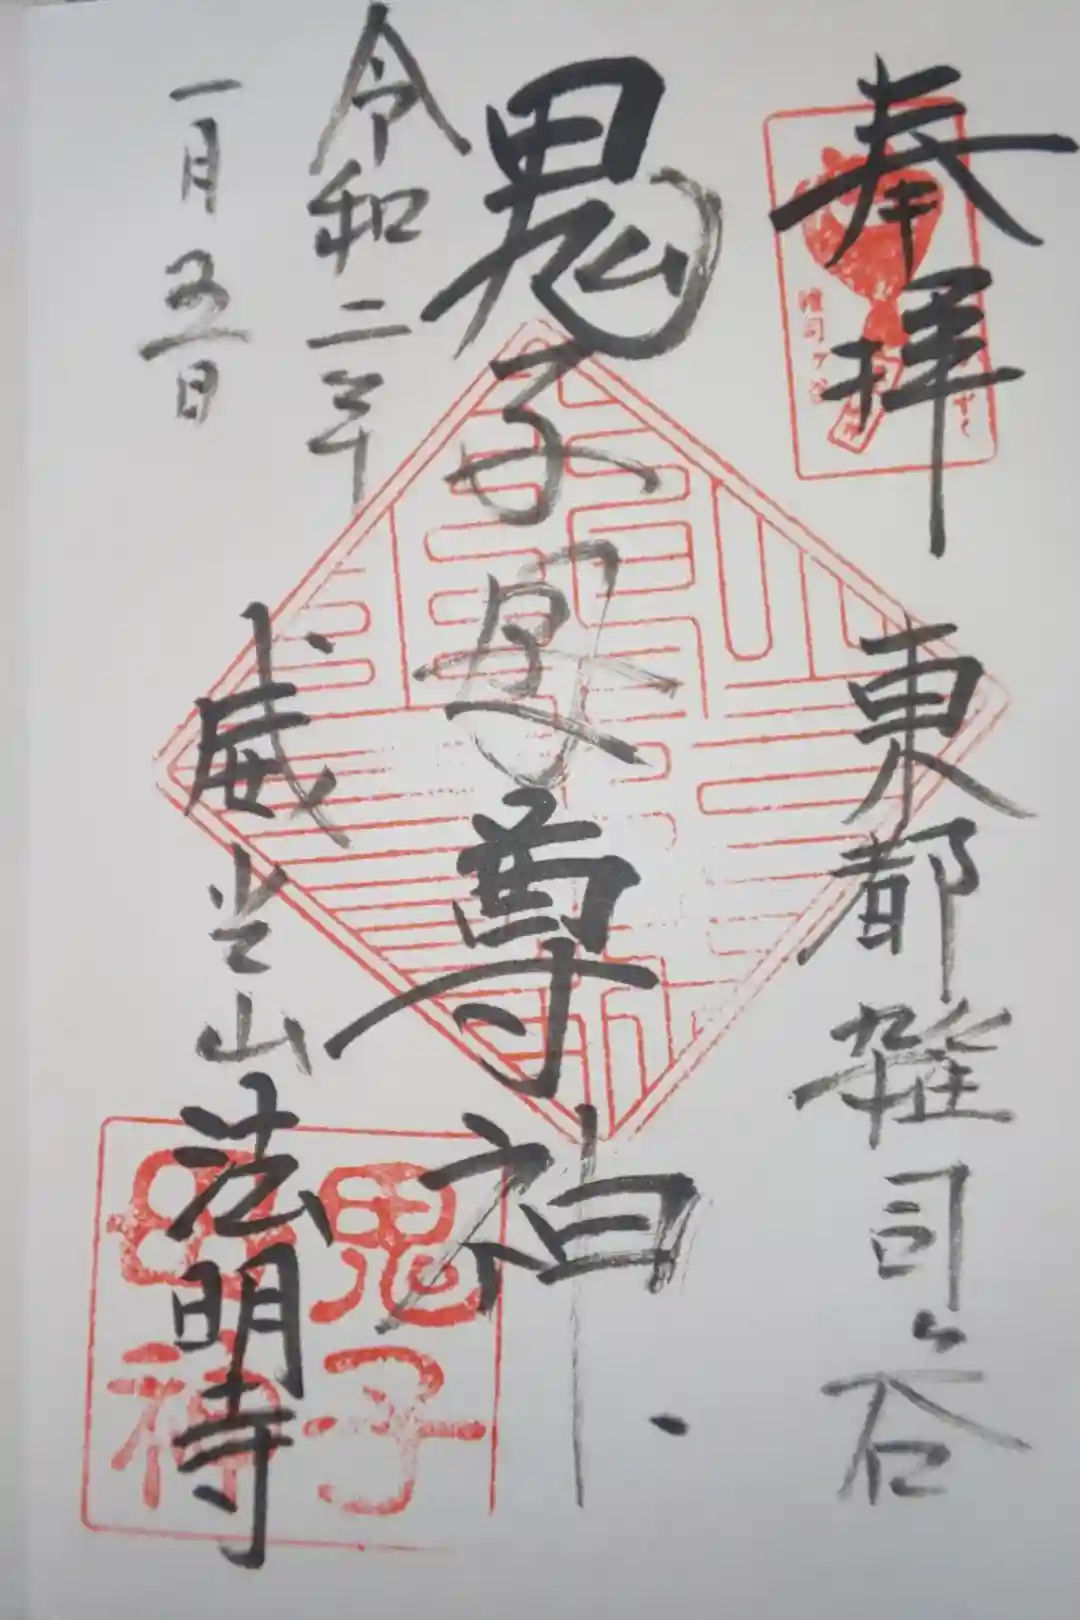 奉拝
東都雑司ヶ谷
鬼子母尊神
令和二年
一月五日
威光山法明寺
雑司ヶ谷
鬼子
母神